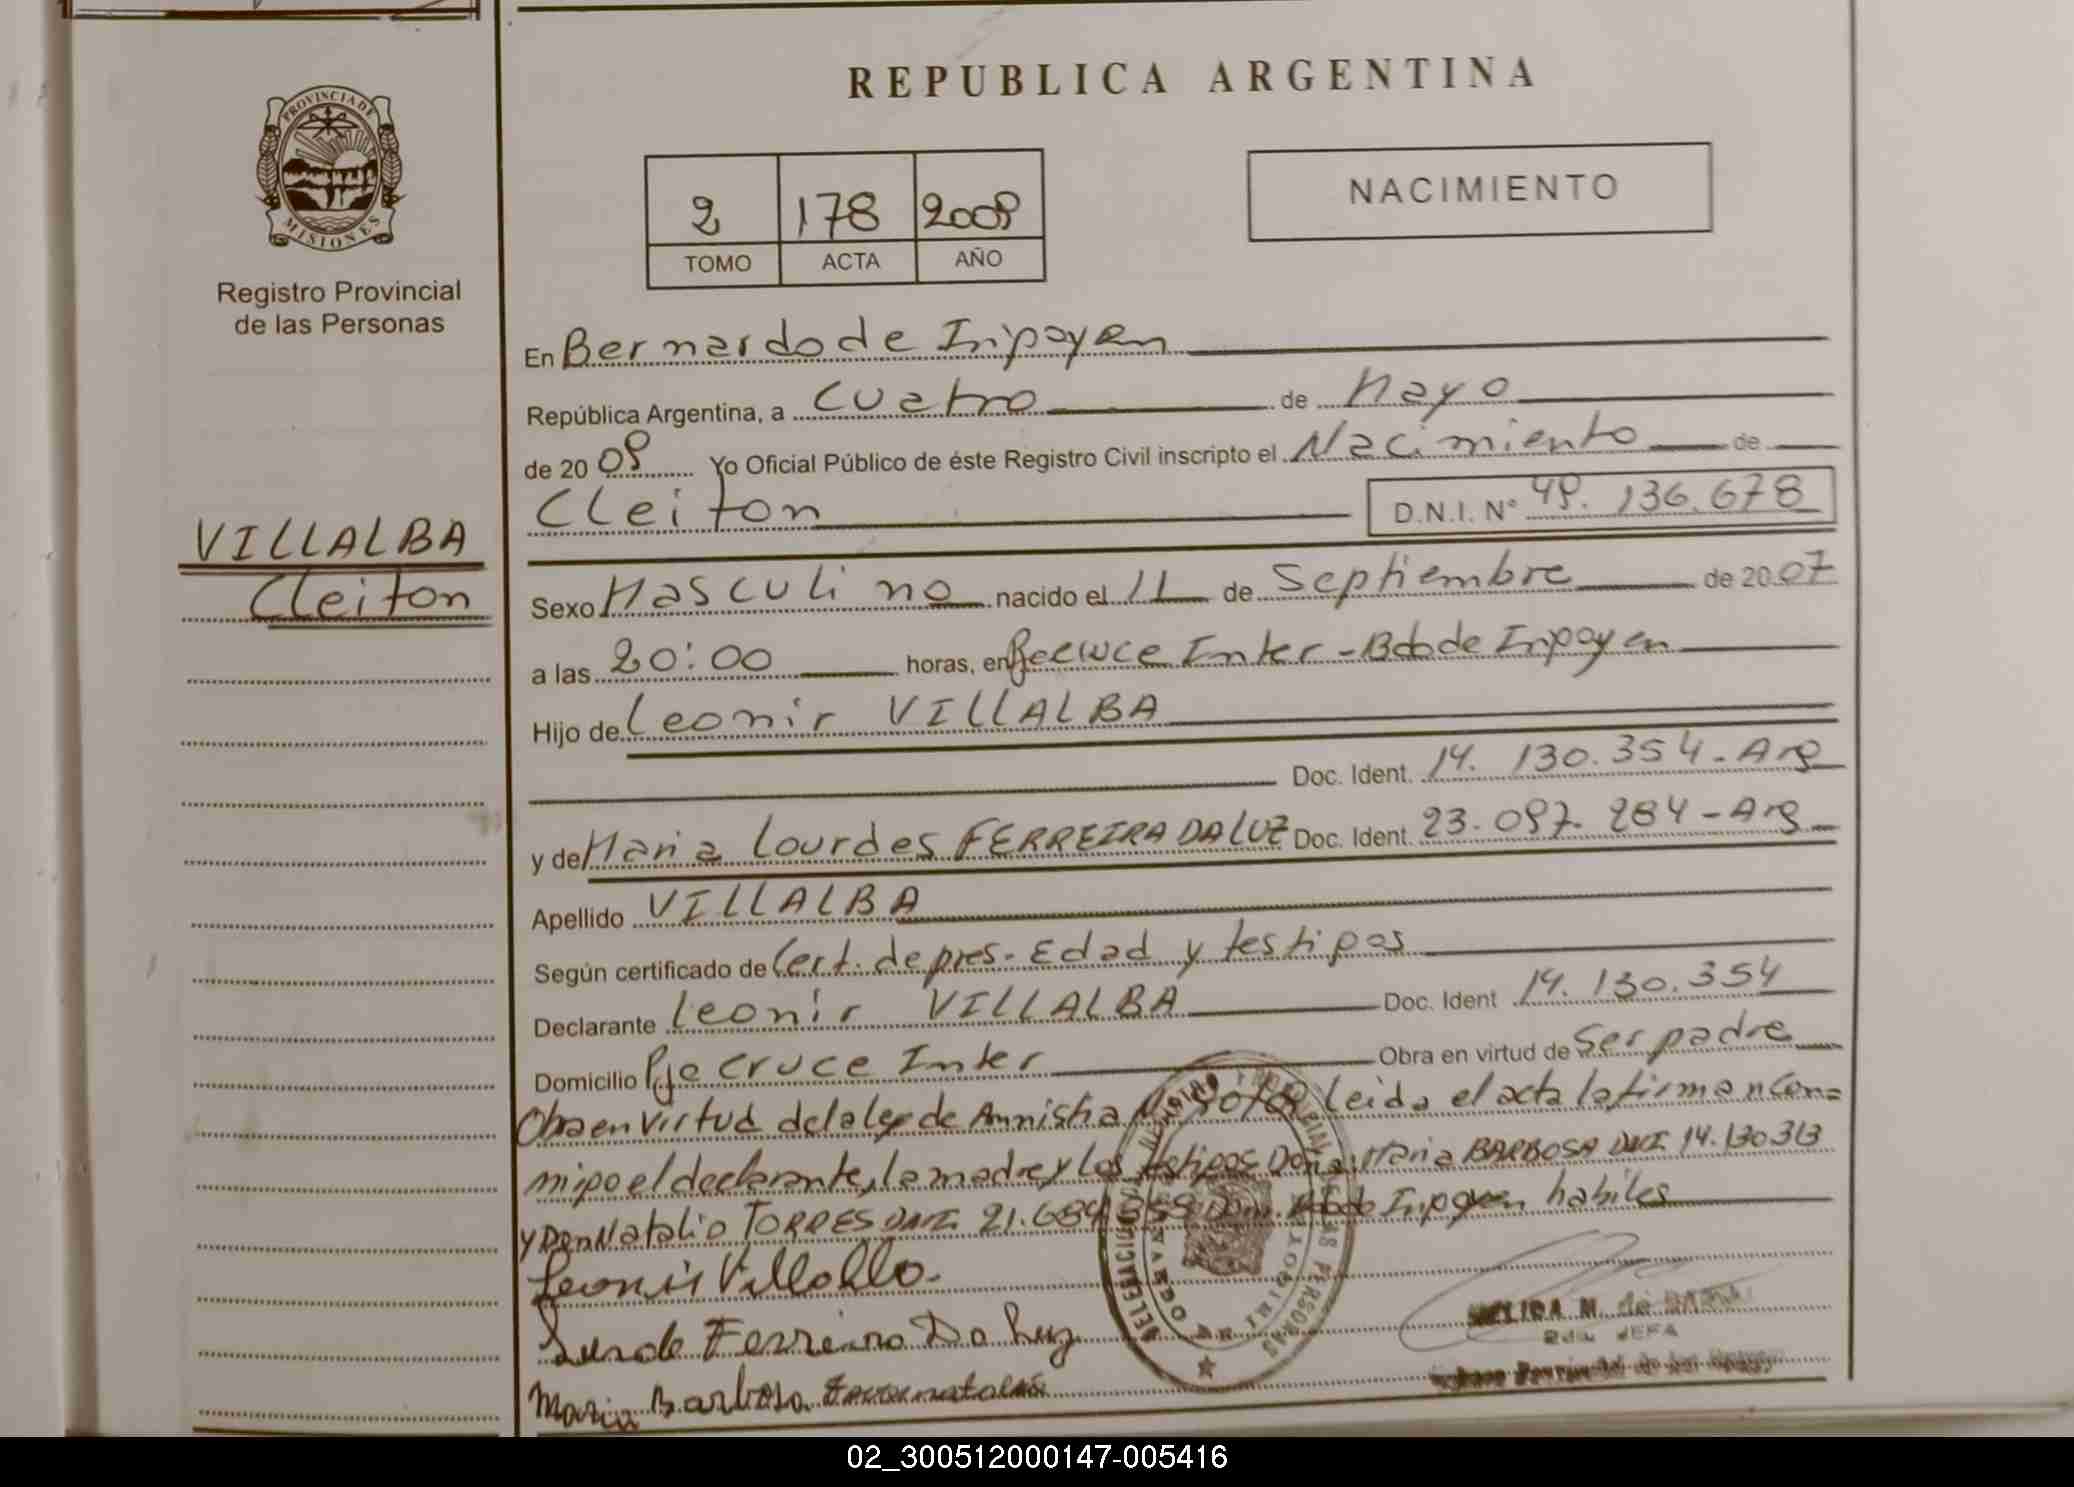 REPUBLICA ARGENTINA
PROVINCIA DE
MISIONES
Registro Provincial
de las Personas
2 178 2009
TOMO ACTA AÑO
NACIMIENTO
En Bernardo de Irigoyen
República Argentina, a cuatro de Mayo
de 2009 Yo Oficial Público de éste Registro Civil inscripto el Nacimiento de
Cleiton D.N.I. N° 49.136.678
VILLALBA
Cleiton
Sexo Masculino nacido el 11 de Septiembre de 2007
a las 20:00 horas, en Inter - Bdo de Irigoyen
Hijo de Leonir VILLALBA
Doc. Ident. 14.130.354 - Arg
y de Maria Lourdes FERREIRA DA LUZ Doc. Ident. 23.097.284 - Arg
Apellido VILLALBA
Según certificado de Cert. de pres. Edad y testigos
Declarante Leonir VILLALBA Doc. Ident 14.130.354
Domicilio Pje Cruce Inter Obra en virtud de Ser padre
Obra en virtud de la ley de Amnistia leida el acta la firman con=
migo el declarante, la madre y los testigos Doña Maria BARBOSA DNI 14.130313
y Don Natalio TORRES DNI 21.684.359 Dom. Bdo de Irigoyen habiles
Leonir Villalba.
Ferreira Da Luz
Maria Barbosa
DE LAS PERSONAS
JEFA
02_300512000147-005416